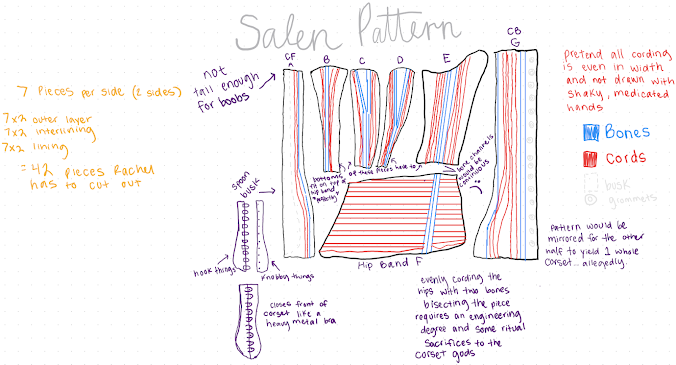 Salen Pattern
7 pieces per side (2 sides)
7x2 outer layer
7x2 interlining
7x2 lining
= 42 pieces Rachel
has to cut out
not
tall enough
for boobs
CF
A
B
C
D
E
CB
G
Pretend all cording
is even in width
and not drawn with
shaky, medicated
hands
Bones
Cords
busk
grommets
pattern would be
mirrored for the other
half to yield 1 whole
corset... allegedly.
bottoms
fit on top of
hip band
of these pieces
bone channels
would be
continuous
Hip Band F
spoon
busk
hook things
knobby things
closes front of
corset like a
heavy metal bra
evenly cording the
hips with two bones
bisecting the piece
requires an engineering
degree and some ritual
sacrifices to the
corset gods